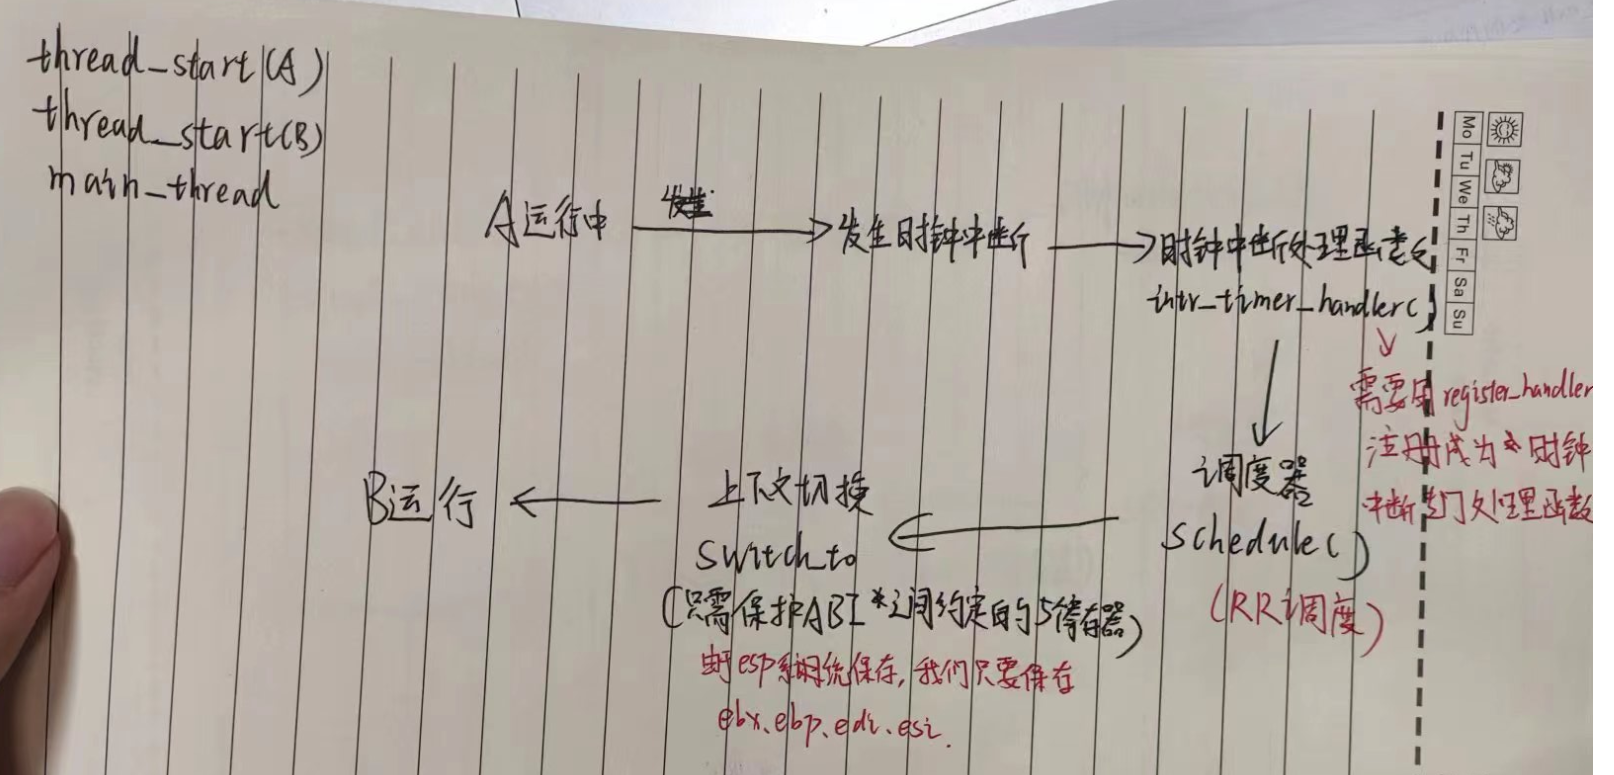 thread_start(A)
thread_start(B)
main_thread
A运行中
发生
发生时钟中断
时钟中断处理函数
intr_timer_handler()
需要用register_handler
注册成为时钟
中断专门处理函数
调度器
schedule()
(RR调度)
上下文切换
switch_to
(只需保护ABI之间约定的5寄存器)
由于esp系统保存,我们只要保存
ebx、ebp、edi、esi.
B运行
Mo Tu We Th Fr Sa Su